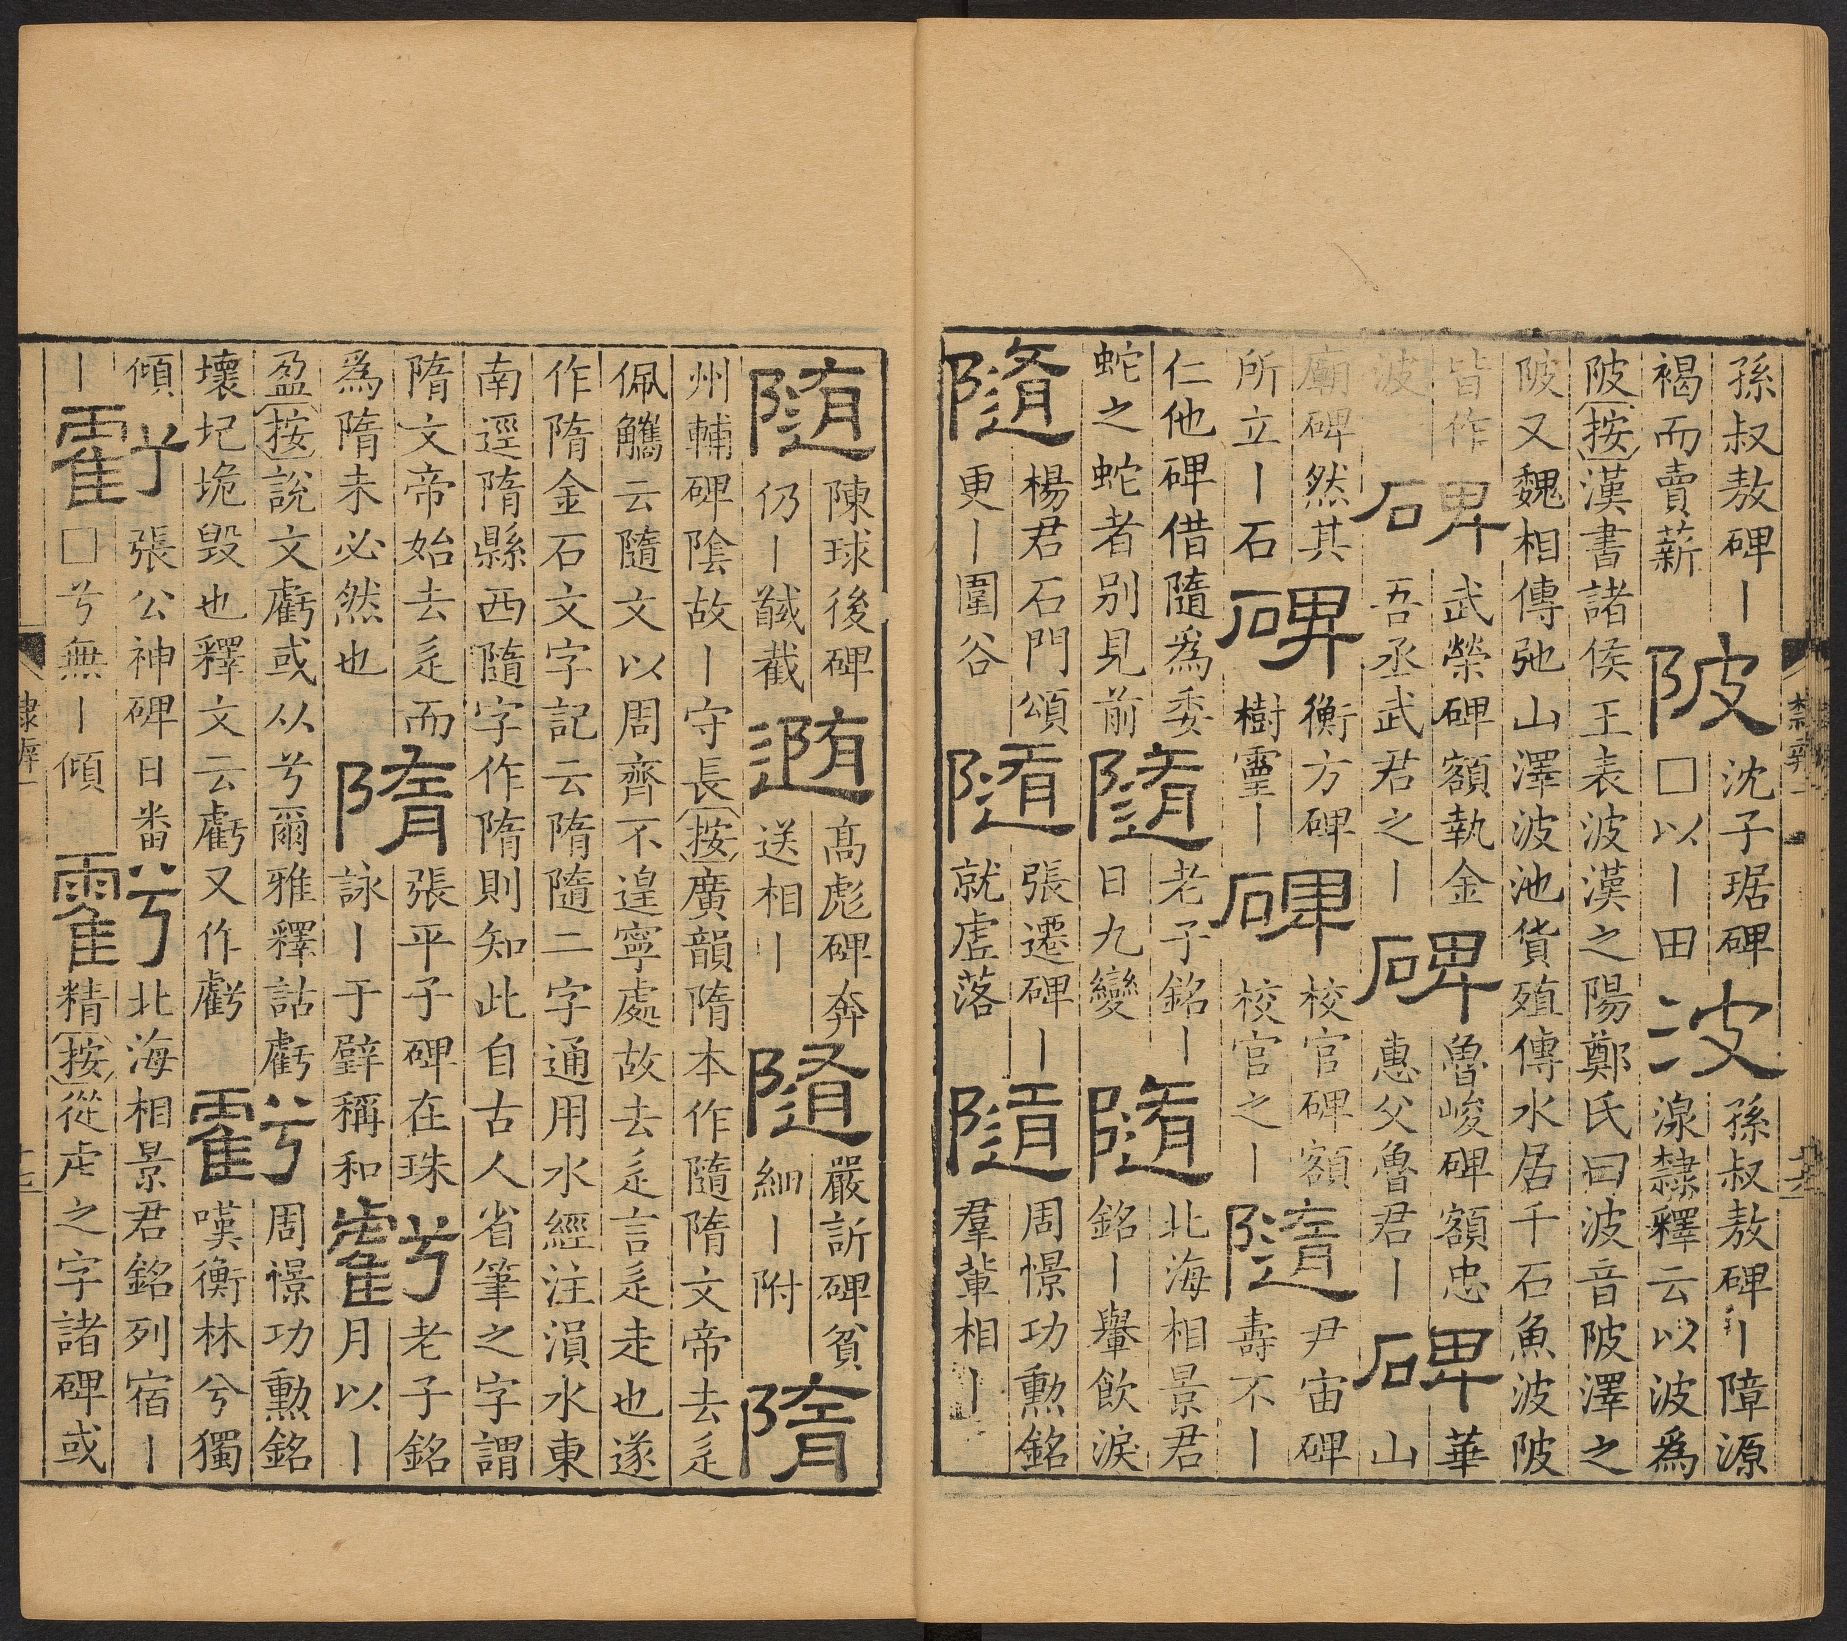 孫叔敖碑丨
褐而賣薪
陂
沈子琚碑
□以丨田
波
孫叔敖碑丨障源
湶隸釋云以波爲
陂按漢書諸侯王表波漢之陽鄭氏曰波音陂澤之
陂又魏相傳弛山澤波池貨殖傳水居千石魚波陂
皆作
波
碑
武榮碑額執金
吾丞武君之丨
碑
魯峻碑額忠
惠父魯君丨
碑
華
山
廟碑然其
所立丨石
碑
衡方碑
樹靈丨
碑
校官碑額
校官之丨
隨
尹宙碑
壽不丨
仁他碑借隨爲委
蛇之蛇者别見前
隨
老子銘丨
日九變
隨
北海相景君
銘丨轝飲淚
隨
楊君石門頌
更丨圍谷
隨
張遷碑丨
就虛落
隨
周憬功勲銘
羣軰相丨
隨
陳球後碑
仍丨馘截
隨
高彪碑奔
送相丨
隨
嚴訢碑貧
細丨附
隋
州輔碑陰故丨守長按廣韻隋本作隨隋文帝去辵
佩觿云隨文以周齊不遑寧處故去辵言辵走也遂
作隋金石文字記云隋隨二字通用水經注溳水東
南逕隋縣西隨字作隋則知此自古人省筆之字謂
隋文帝始去辵而
爲隋未必然也
隋
張平子碑在珠
詠丨于璧稱和
虧
老子銘
月以丨
盈按說文虧或从兮爾雅釋詁虧
壞圮垝毀也釋文云虧又作虧
虧
周憬功勲銘
嘆衡林兮獨
傾
丨
虧
張公神碑日番
□兮無丨傾
虧
北海相景君銘列宿丨
精按從虍之字諸碑或